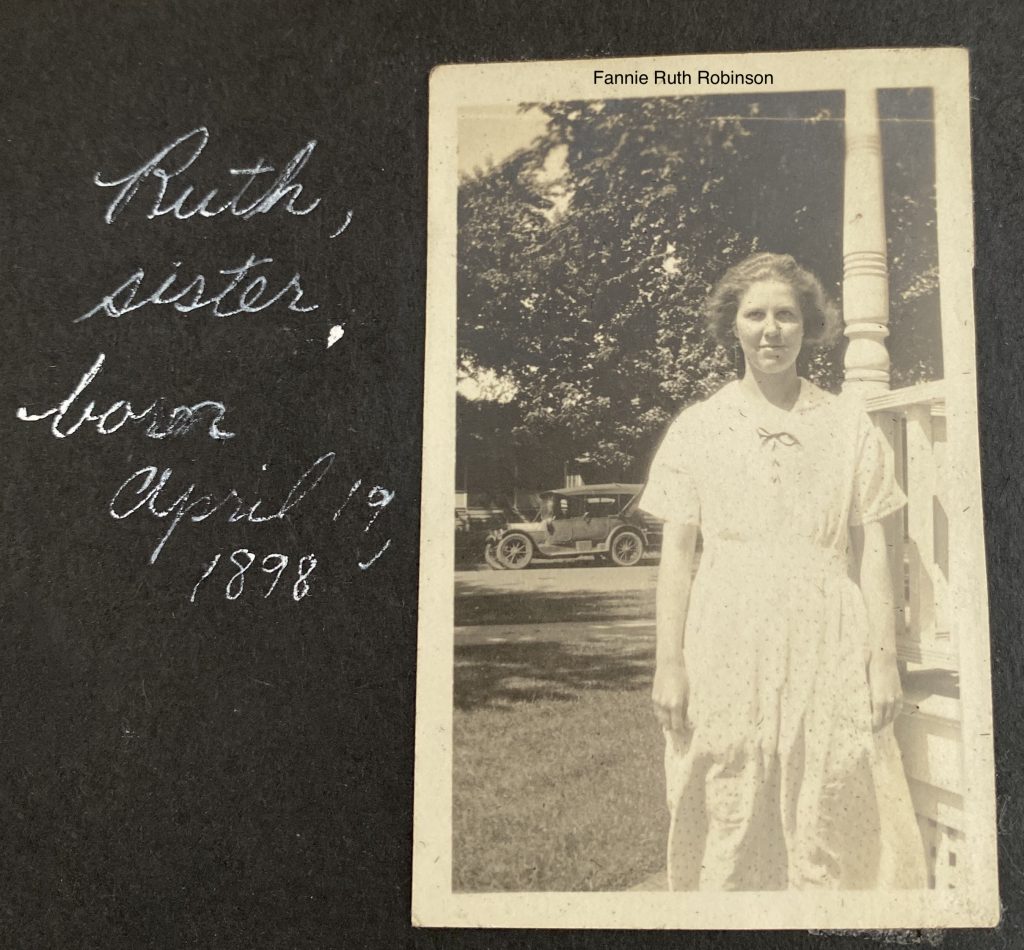 Fannie Ruth Robinson
Ruth,
sister,
born
April 19,
1898